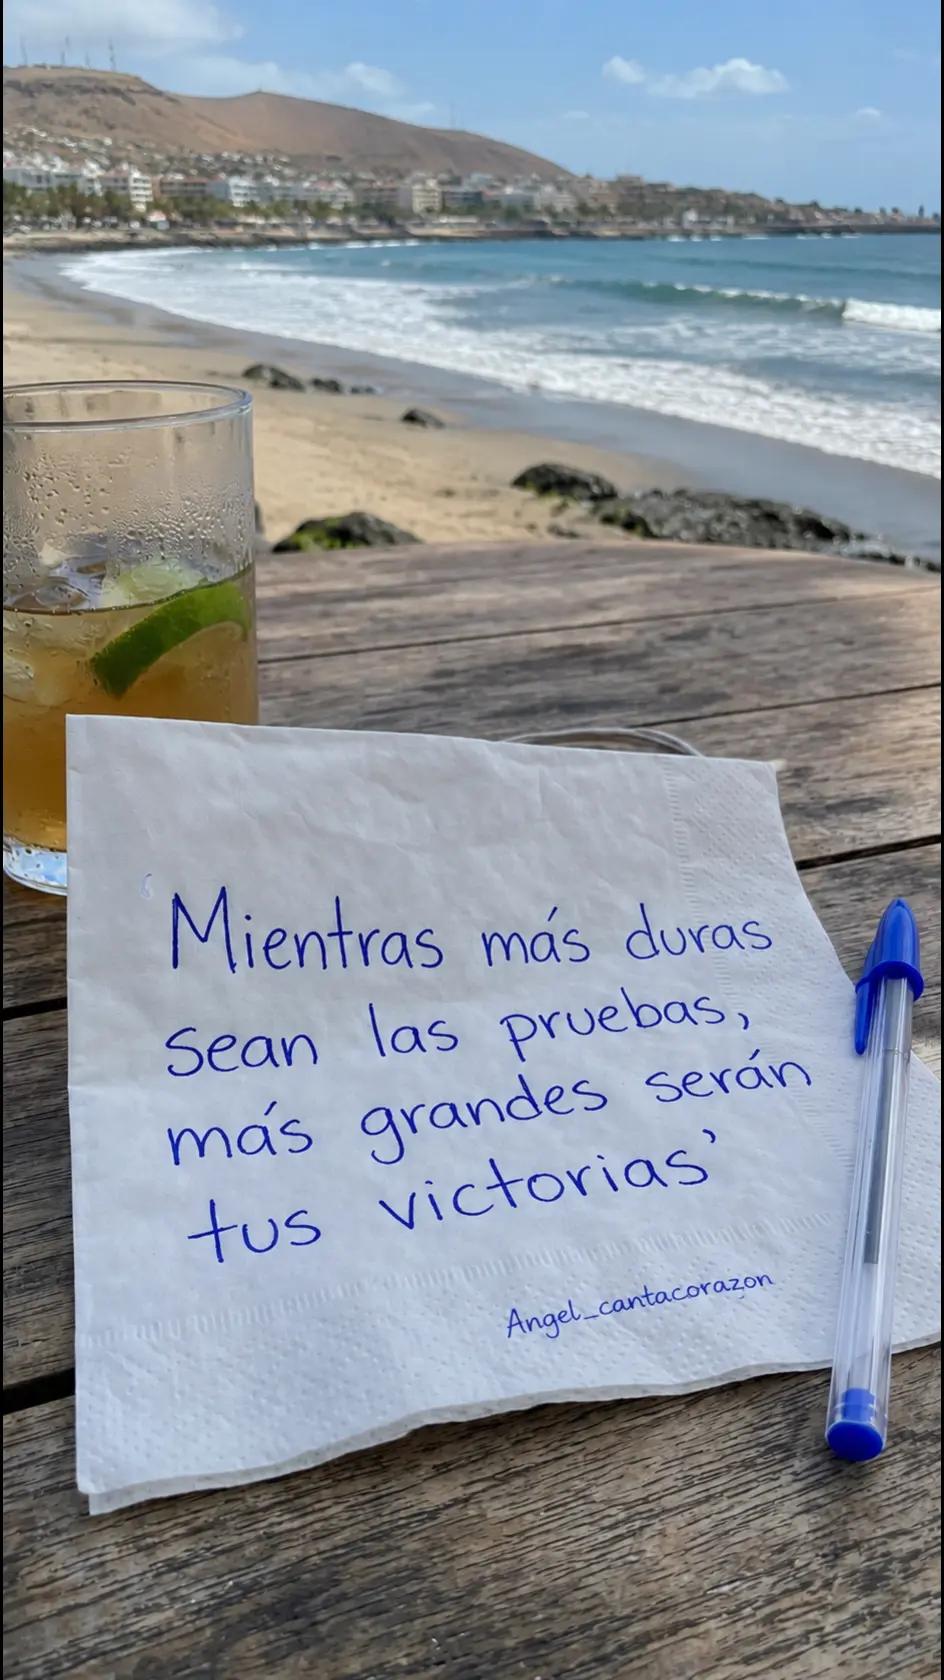 'Mientras más duras
sean las pruebas,
más grandes serán
tus victorias'
Angel_cantacorazon